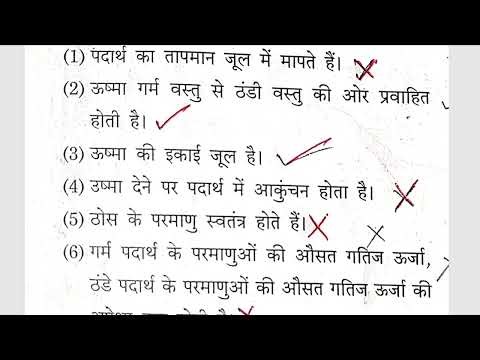 (1) पदार्थ का तापमान जूल में मापते हैं।
(2) ऊष्मा गर्म वस्तु से ठंडी वस्तु की ओर प्रवाहित
होती है।
(3) ऊष्मा की इकाई जूल है।
(4) उष्मा देने पर पदार्थ में आकुंचन होता है।
(5) ठोस के परमाणु स्वतंत्र होते हैं।
(6) गर्म पदार्थ के परमाणुओं की औसत गतिज ऊर्जा,
ठंडे पदार्थ के परमाणुओं की औसत गतिज ऊर्जा की